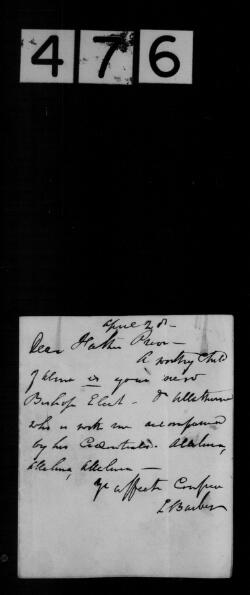 476
April 28 -
Dear Father Prior -
A worthy Child
of ours is your new
Bishop Elect -
who is with me accompanied
by his Credentials. Alleluia,
Alleluia, Alleluia -
Yr affecte Confrere
L Barber